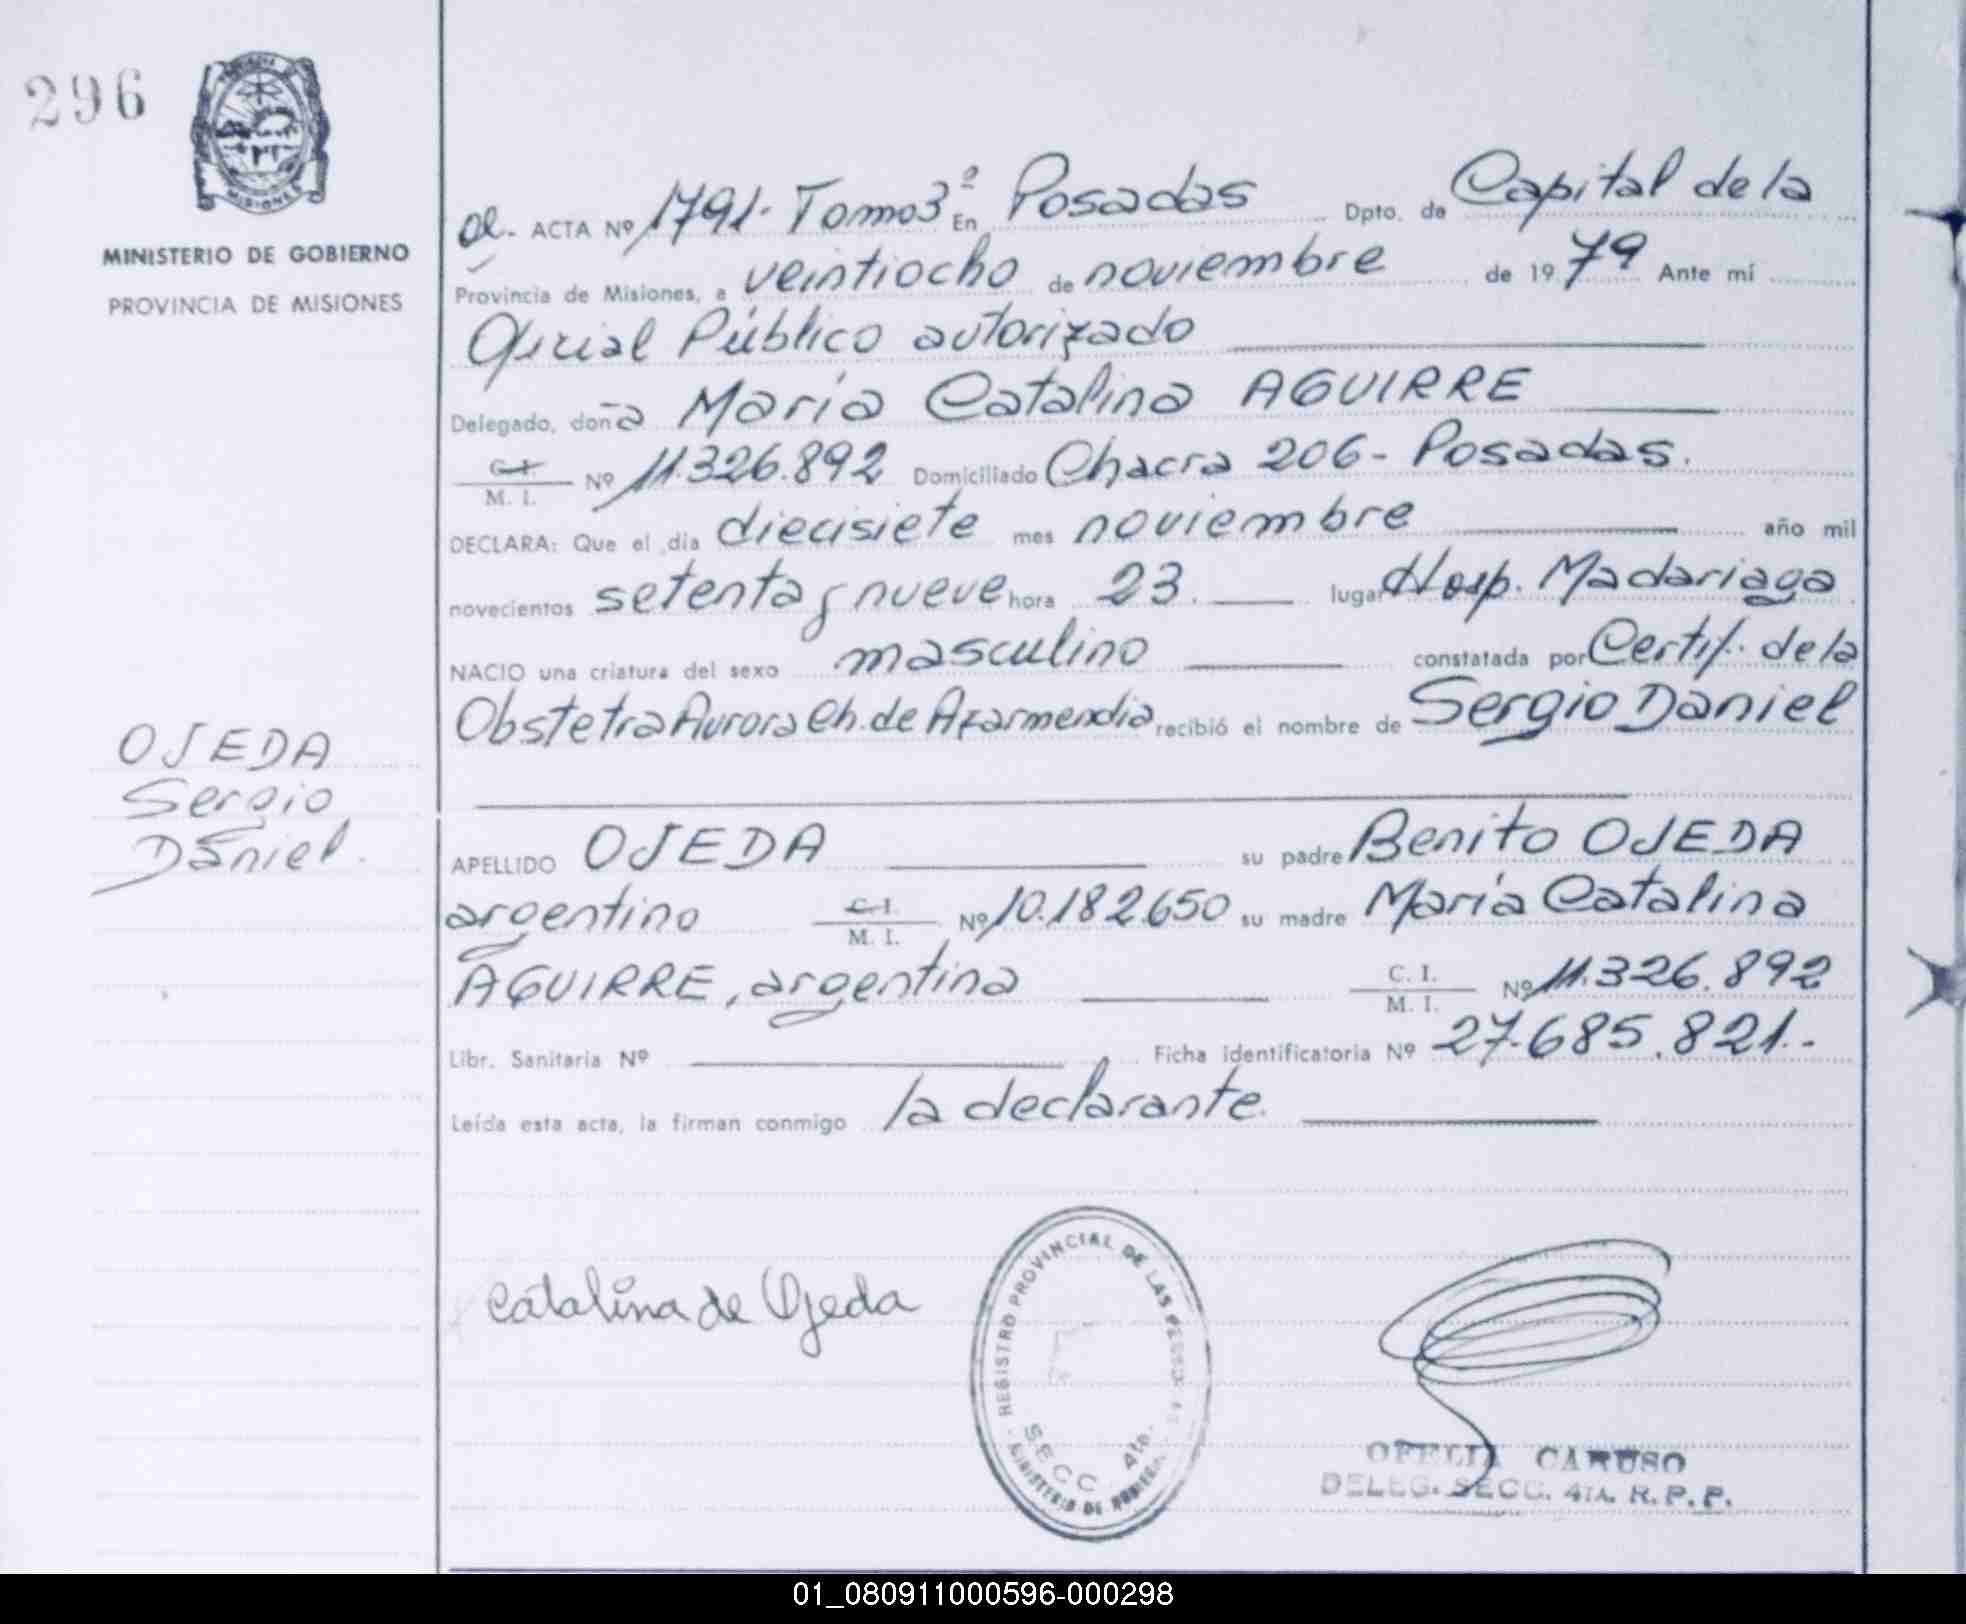 296
PROVINCIA DE
MISIONES
MINISTERIO DE GOBIERNO
PROVINCIA DE MISIONES
OJEDA
Sergio
Daniel.
ACTA Nº 1791- Tomo 3º En Posadas Dpto. de Capital de la
Provincia de Misiones, a veintiocho de noviembre de 1979 Ante mí
Oficial Público autorizado
Delegado, doña María Catalina AGUIRRE
C. I. / M. I. Nº 11.326.892 Domiciliado Chacra 206- Posadas.
DECLARA: Que el día diecisiete mes noviembre año mil
novecientos setenta y nueve hora 23. lugar Hosp. Madariaga
NACIO una criatura del sexo masculino constatada por Certif. de la
Obstetra Aurora Ch. de Azarmendia recibió el nombre de Sergio Daniel
APELLIDO OJEDA su padre Benito OJEDA
argentino C. I. / M. I. Nº 10.182.650 su madre María Catalina
AGUIRRE, argentina C. I. / M. I. Nº 11.326.892
Libr. Sanitaria Nº Ficha identificatoria Nº 27.685.821.-
Leída esta acta, la firman conmigo la declarante.
Catalina de Ojeda
REGISTRO PROVINCIAL DE LAS PERSONAS
SECC. 4ta.
MINISTERIO DE GOBIERNO
OFELIA CARUSO
DELEG. SECC. 4TA. R. P. P.
01_080911000596-000298